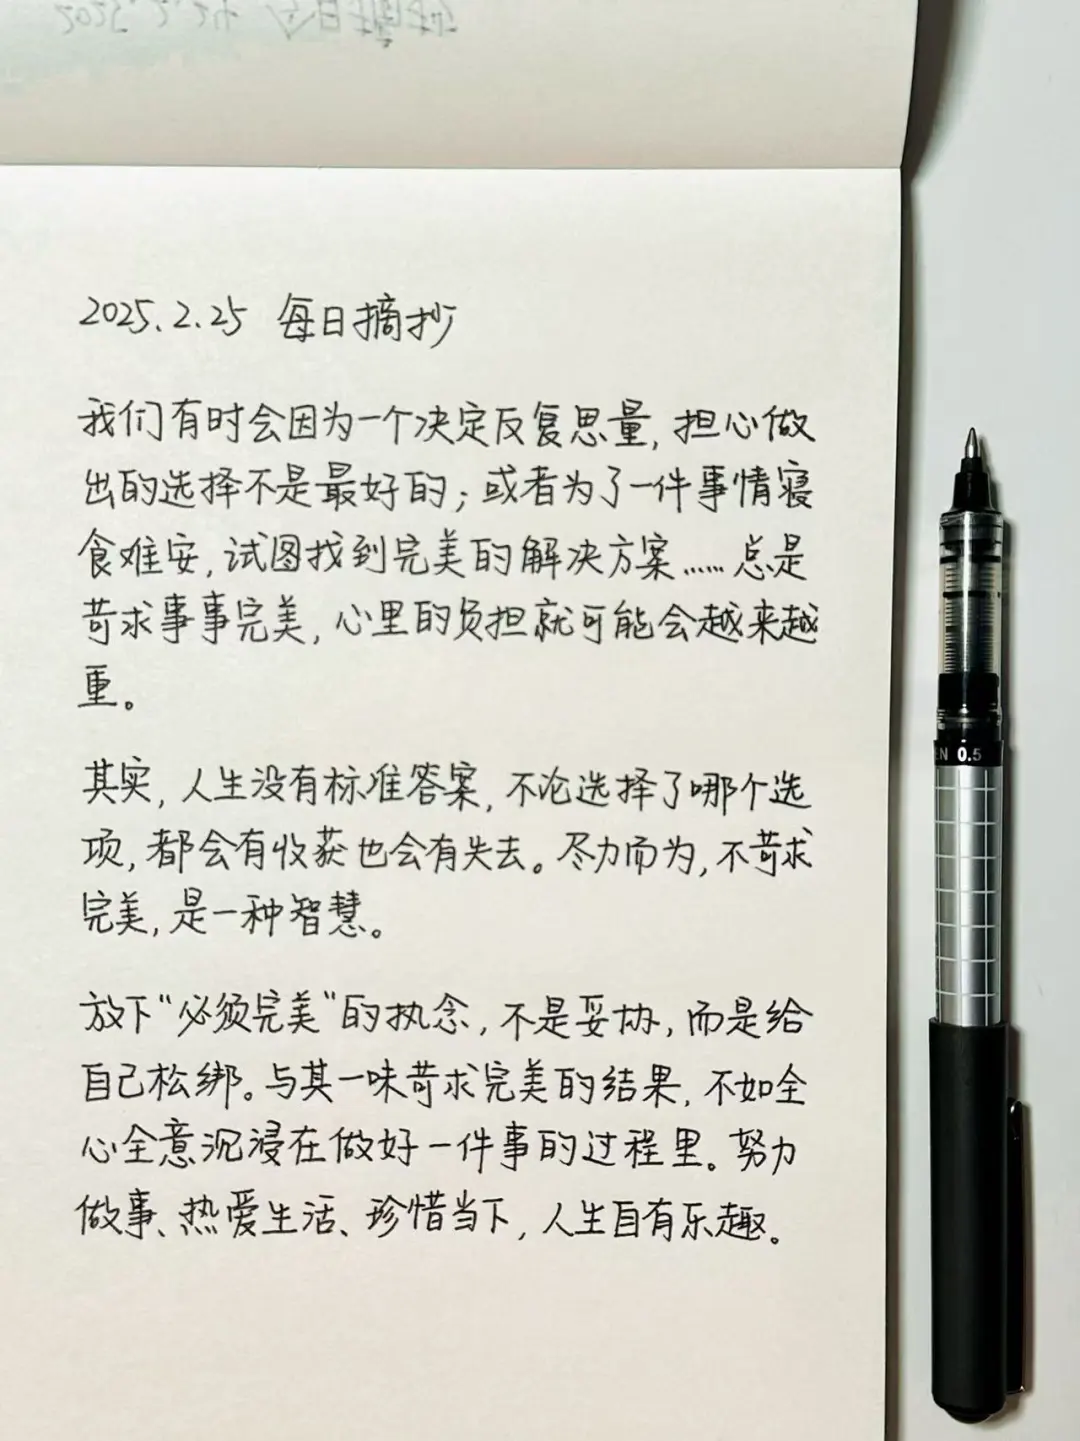 2025.2.25 每日摘抄
我们有时会因为一个决定反复思量，担心做
出的选择不是最好的；或者为了一件事情寝
食难安，试图找到完美的解决方案……总是
苛求事事完美，心里的负担就可能会越来越
重。
其实，人生没有标准答案，不论选择了哪个选
项，都会有收获也会有失去。尽力而为，不苛求
完美，是一种智慧。
放下“必须完美”的执念，不是妥协，而是给
自己松绑。与其一味苛求完美的结果，不如全
心全意沉浸在做好一件事的过程里。努力
做事、热爱生活、珍惜当下，人生自有乐趣。
0.5